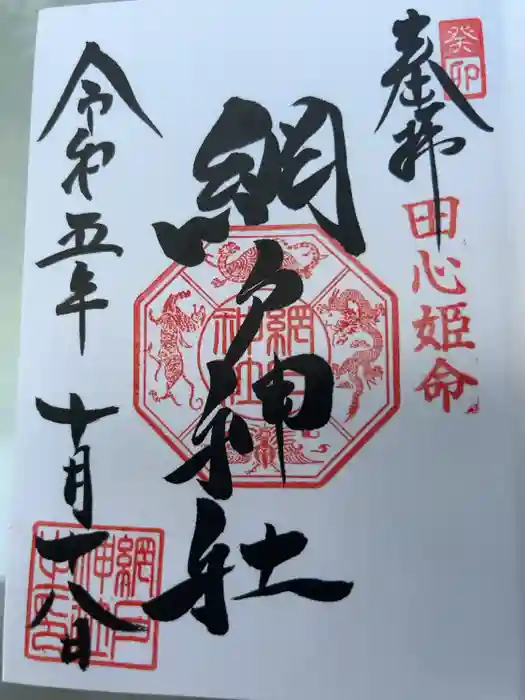 癸卯
奉拝
田心姫命
網戸神社
網戸神社
令和五年
十月十八日